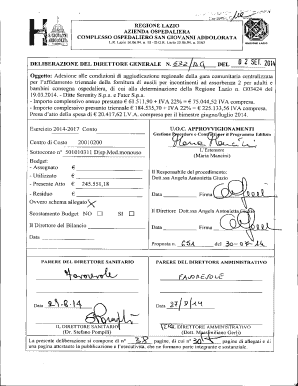 REGIONE LAZIO
AZIENDA OSPEDALIERA
COMPLESSO OSPEDALIERO SAN GIOVANNI ADDOLORATA
DELIBERAZIONE DEL DIRETTORE GENERALE N. 582/DG DEL 02 SET. 2014
Oggetto: Adesione alle condizioni di aggiudicazione regionale della gara comunitaria centralizzata
per l'affidamento triennale della fornitura di ausili per incontinenti ad assorbenza 2 per adulti e
bambini consegna Ospedaliera occorrenti alle Aziende Sanitarie della Regione Lazio n. G03424 del
19.03.2014 - Ditte Serenity S.p.a. e Fater S.p.a.
- Importo complessivo annuo presunto € 61.511,90 + IVA 22% = € 75.044,52 IVA compresa.
- Importo complessivo presunto triennale € 184.535,70 + IVA 22% = € 225.133,56 IVA compresa.
Presa d'atto della spesa di € 20.417,62 I.V.A. compresa per il bimestre giugno/luglio 2014.
Esercizio 2014-2017 Conto
Centro di Costo 20010200
Sottoconto n° 501010311 Disp.Med.monouso
Budget:
- Assegnato €
- Utilizzato €
- Presente Atto € 245.551,18
- Residuo €
Ovvero schema allegato
Scostamento Budget NO SI
Il Direttore del Bilancio
Data
U.O.C. APPROVVIGIONAMENTI
L'Estensore
(Maria Mancini)
Il Responsabile del procedimento:
Dott.ssa Angela Antonietta Giuzio
Data Firma
Il Direttore: Dott.ssa Angela Antonietta Giuzio
Data Firma
Proposta n. 65A del 30-07-14
PARERE DEL DIRETTORE SANITARIO
Favorevole
Data 29.8.14
IL DIRETTORE SANITARIO
(Dr. Stefano Pompili)
PARERE DEL DIRETTORE AMMINISTRATIVO
FAVOREVOLE
Data
IL DIRETTORE AMMINISTRATIVO
(Dott. Massimiliano Gerli)
La presente deliberazione si compone di n° 38 pagine, di cui n° pagine di allegati e di
una pagina attestante la pubblicazione e l'esecutività, che ne formano parte integrante e sostanziale.